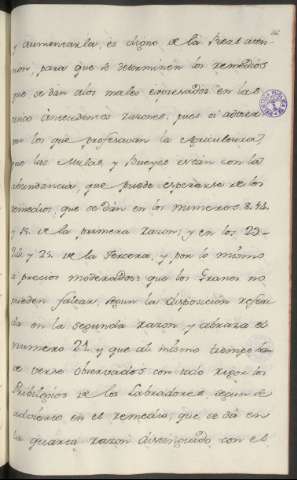 y aumentarla, es digno de la Real aten-
cion, para que se determinen los remedios
que se dàn alos males expresados en las
cinco antecedentes razones; pues si advierten
por los que profesavan la Agricultura,
que las Mulas, y Bueyes esten con la
abundancia, que puede esperarse de los
remedios, que se dàn en los numeros. 8. 14.
y 15. de la primera razon; y en los 23-
24. y 25. de la tercera, y por lo mismo
a precios moderados: que los Granos no
pueden faltar, segun la disposicion referi-
da en la segunda razon y abraza el
numero 21. y que al mismo tiempo han
de verse observados con todo rigor los
Pribilegios de los Labradores, segun se
advierte en el remedio, que se dà en
la quarta razon distinguido con el